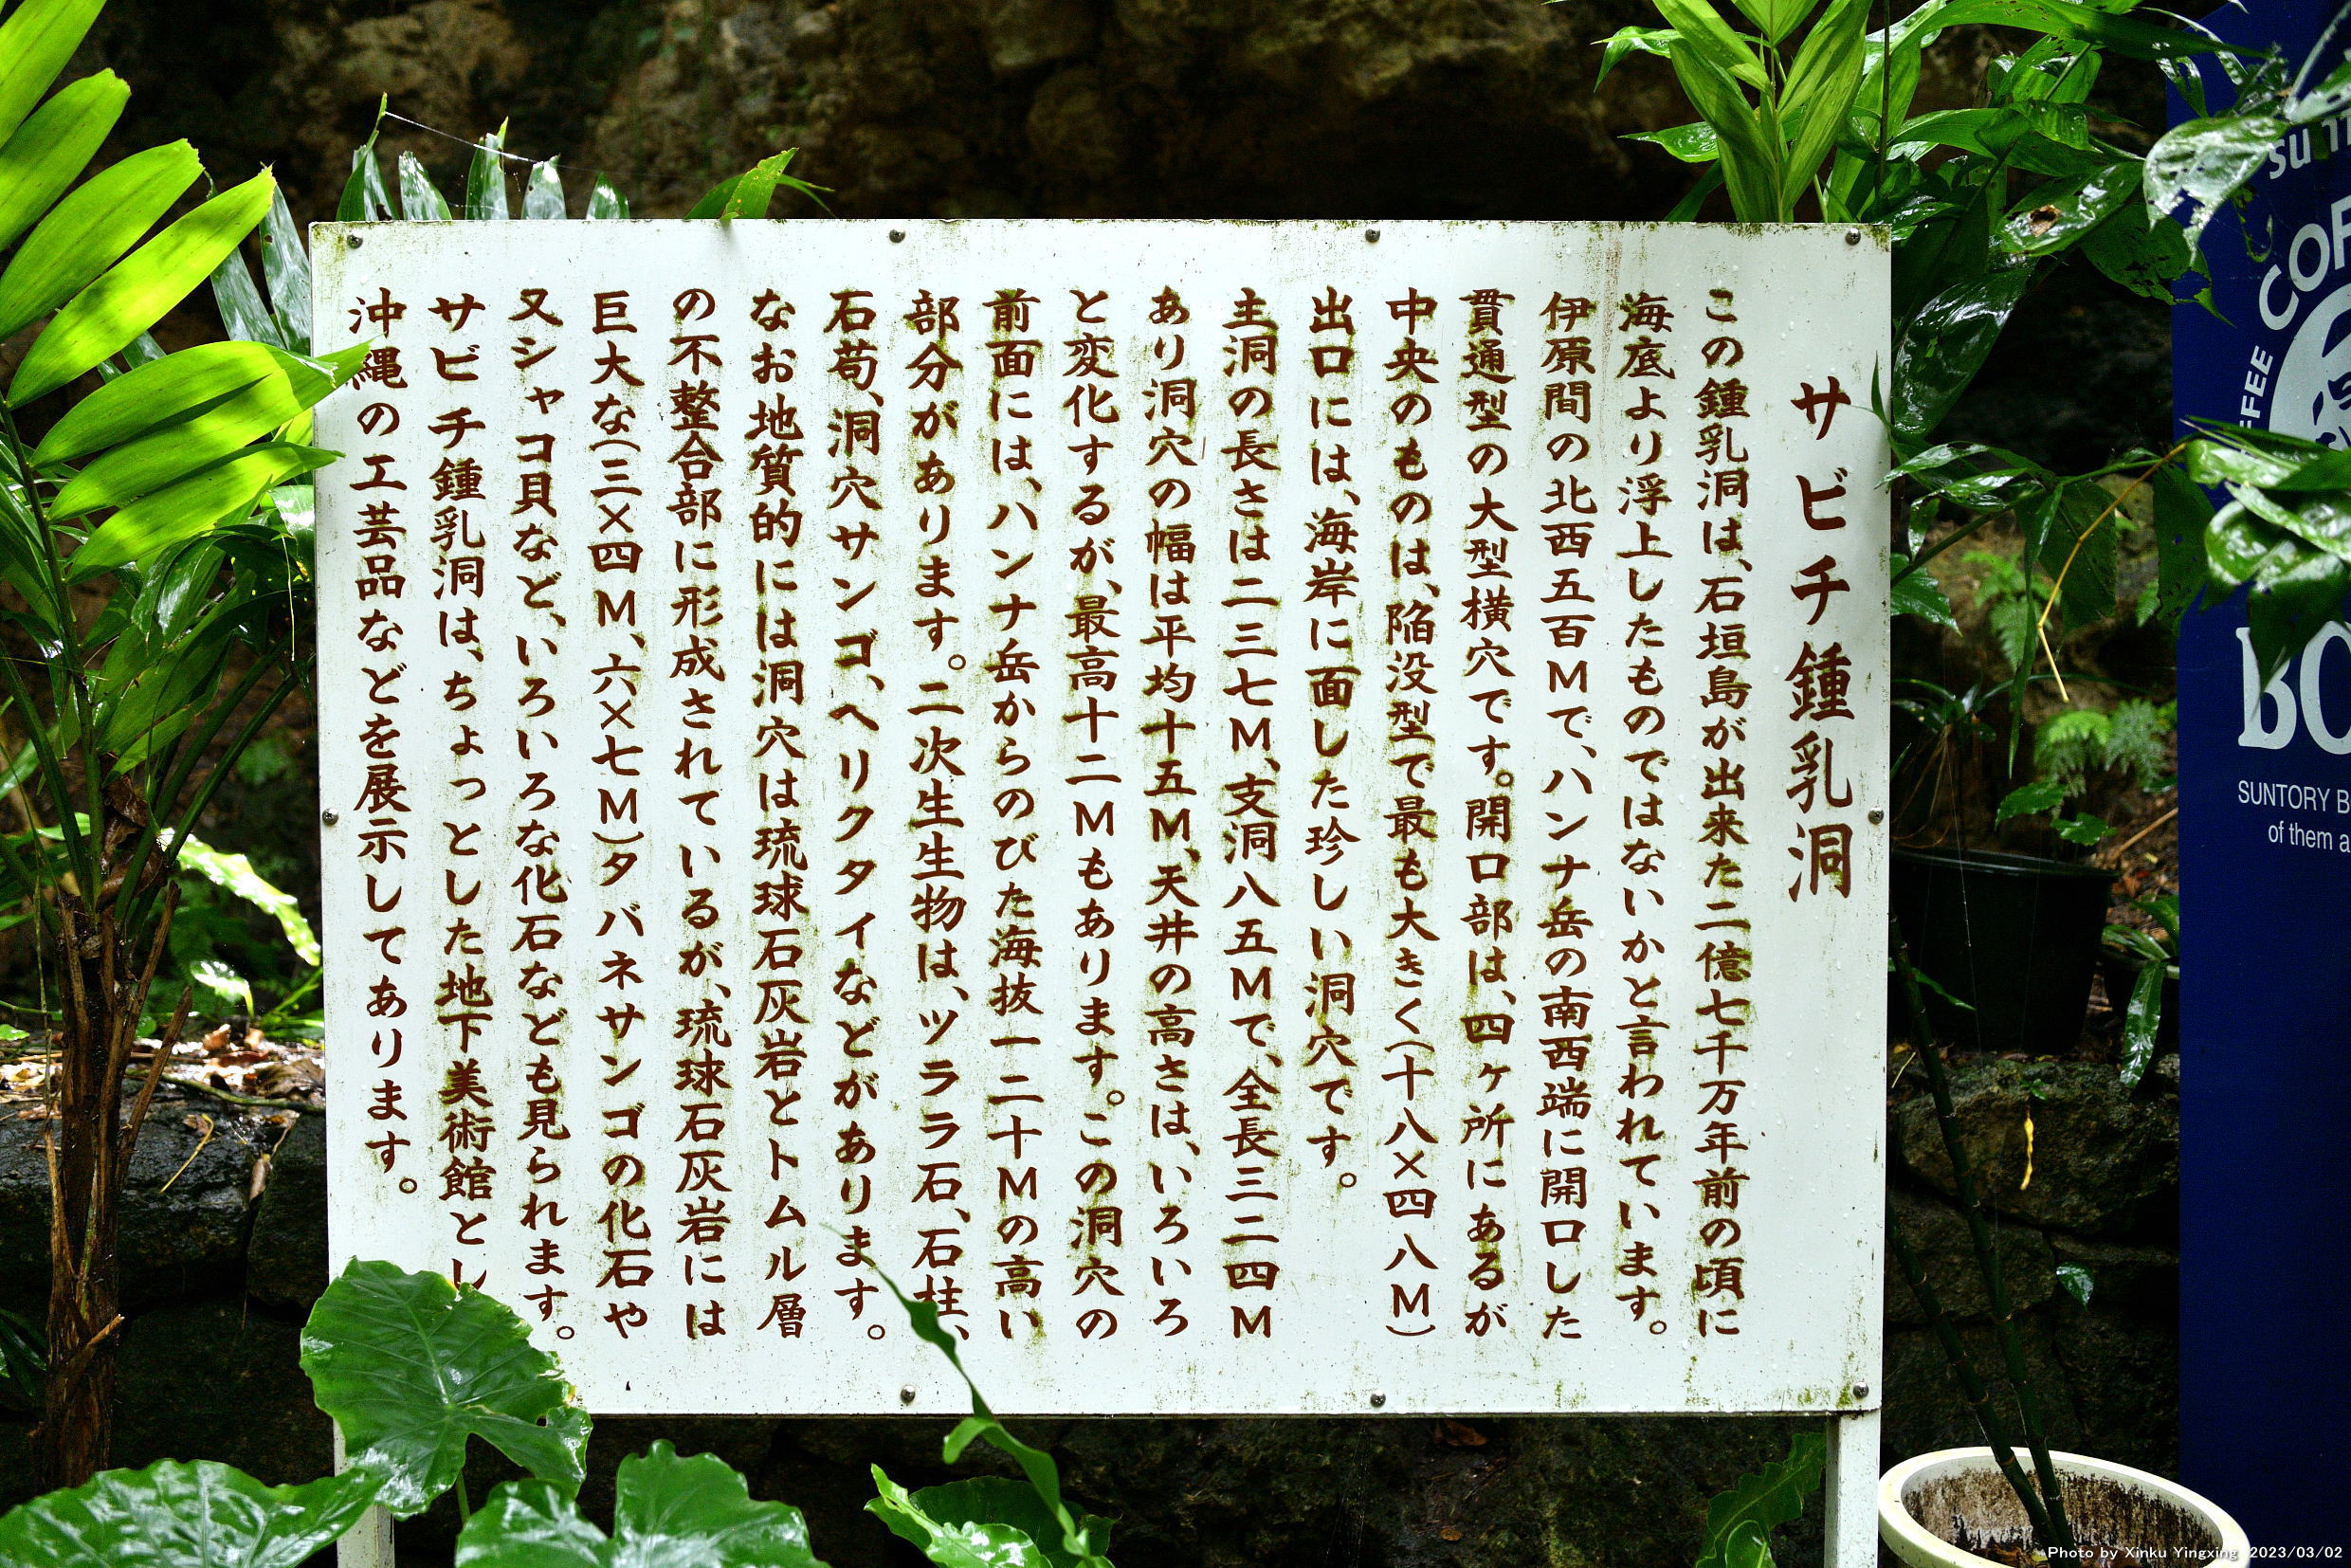 サビチ鍾乳洞
この鍾乳洞は、石垣島が出来た二億七千万年前の頃に
海底より浮上したものではないかと言われています。
伊原間の北西五百Mで、ハンナ岳の南西端に開口した
貫通型の大型横穴です。開口部は、四ヶ所にあるが
中央のものは、陥没型で最も大きく(十八×四八M)
出口には、海岸に面した珍しい洞穴です。
主洞の長さは二三七M、支洞八五Mで、全長三二四M
あり洞穴の幅は平均十五M、天井の高さは、いろいろ
と変化するが、最高十二Mもあります。この洞穴の
前面には、ハンナ岳からのびた海抜一二十Mの高い
部分があります。二次生生物は、ツララ石、石柱、
石苟、洞穴サンゴ、ヘリクタイなどがあります。
なお地質的には洞穴は琉球石灰岩とトムル層
の不整合部に形成されているが、琉球石灰岩には
巨大な(三×四M、六×七M)タバネサンゴの化石や
又シャコ貝など、いろいろな化石なども見られます。
サビチ鍾乳洞は、ちょっとした地下美術館とし
沖縄の工芸品などを展示してあります。
SUNTORY B
of them a
Photo by Xinku Yingxing 2023/03/02